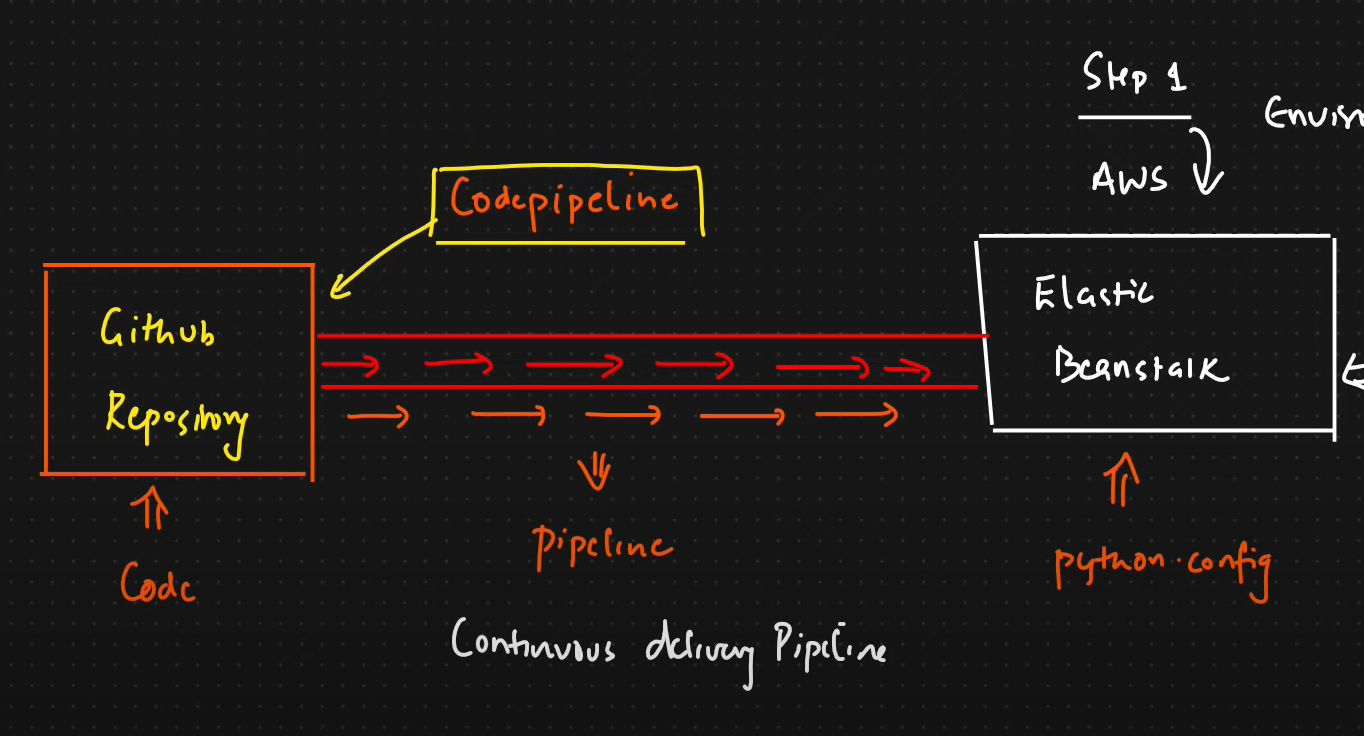 Step 1
AWS
Codepipeline
Github
Repository
Elastic
Beanstalk
Code
Pipeline
python.config
Continuous delivery Pipeline